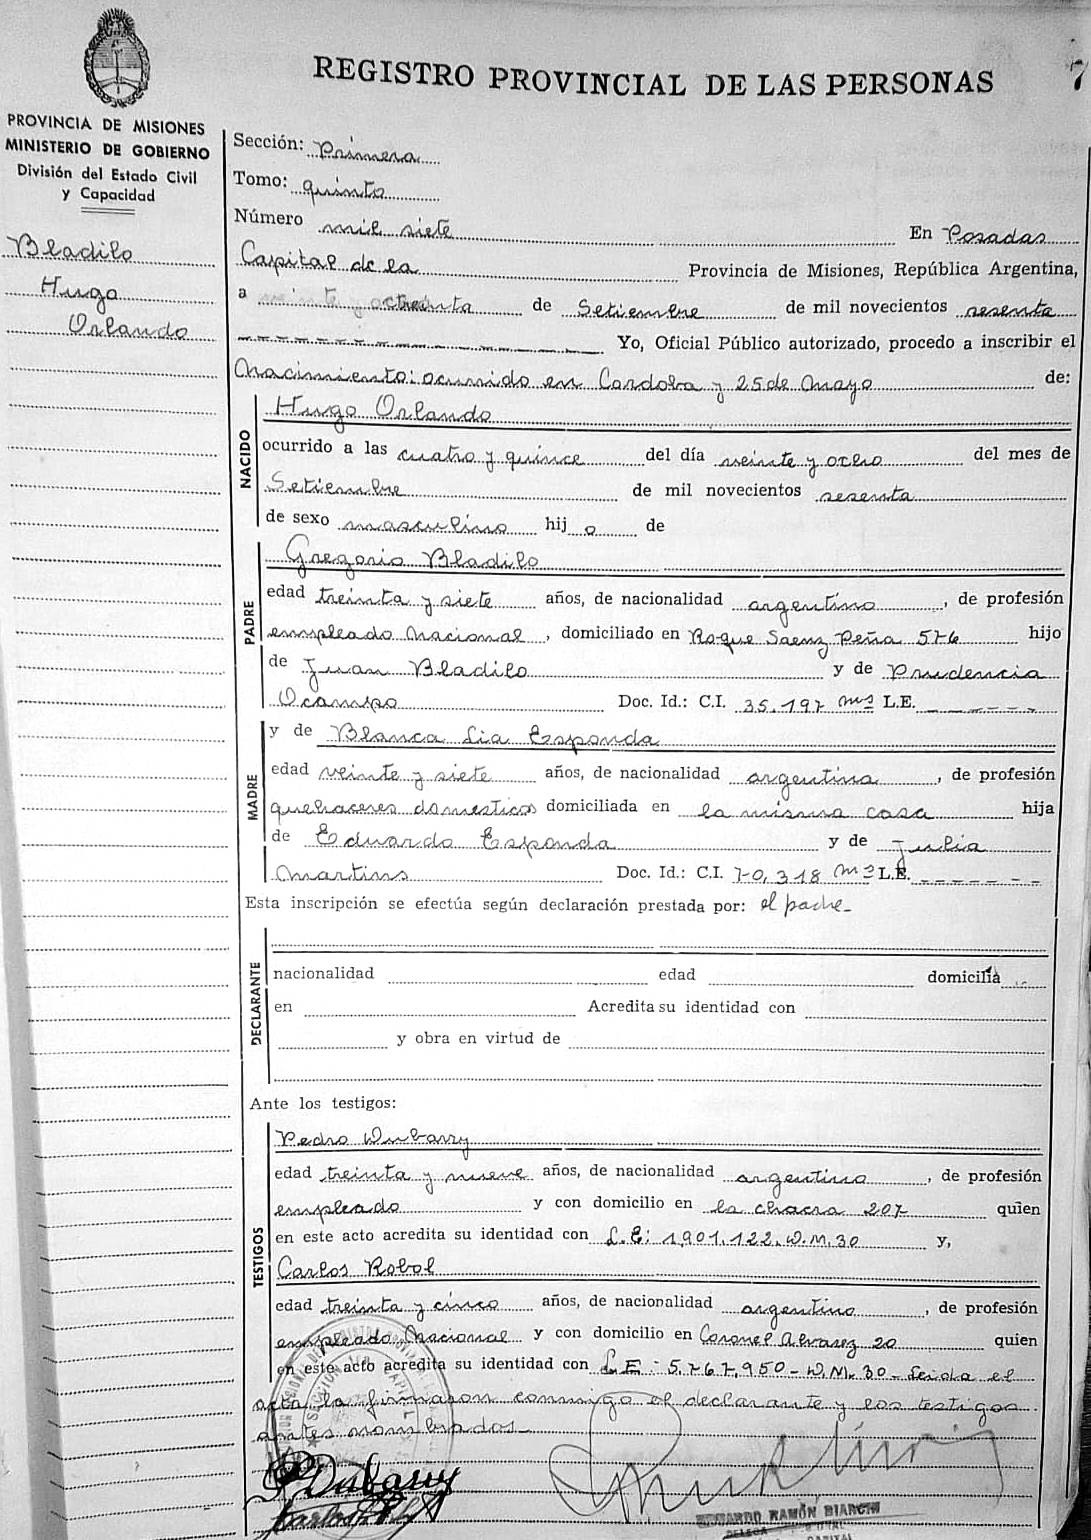 REGISTRO PROVINCIAL DE LAS PERSONAS
7
PROVINCIA DE MISIONES
MINISTERIO DE GOBIERNO
División del Estado Civil
y Capacidad
Bladilo
Hugo
Orlando
Sección: Primera
Tomo: quinto
Número mil siete En Posadas
Capital de la Provincia de Misiones, República Argentina,
a treinta de Setiembre de mil novecientos sesenta
Yo, Oficial Público autorizado, procedo a inscribir el
Nacimiento: ocurrido en Cordoba y 25 de Mayo de:
NACIDO
Hugo Orlando
ocurrido a las cuatro y quince del día veinte y ocho del mes de
Setiembre de mil novecientos sesenta
de sexo masculino hij o de
PADRE
Gregorio Bladilo
edad treinta y siete años, de nacionalidad argentino, de profesión
empleado Nacional, domiciliado en Roque Saenz Peña 576 hijo
de Juan Bladilo y de Prudencia
Ocampo Doc. Id.: C.I. 35.197 Ms L.E. - - - - - -
MADRE
y de Blanca Lia Esponda
edad veinte y siete años, de nacionalidad argentina, de profesión
quehaceres domesticos domiciliada en la misma casa hija
de Eduardo Esponda y de Julia
Martins Doc. Id.: C.I. 70.318 Ms L.E. - - - - - -
Esta inscripción se efectúa según declaración prestada por: el padre-
DECLARANTE
nacionalidad edad domicilia
en Acredita su identidad con
y obra en virtud de
Ante los testigos:
TESTIGOS
Pedro Dubarry
edad treinta y nueve años, de nacionalidad argentino, de profesión
empleado y con domicilio en la chacra 207 quien
en este acto acredita su identidad con L.E: 1.901.122.D.M.30 y,
Carlos Robol
edad treinta y cinco años, de nacionalidad argentino, de profesión
empleado Nacional y con domicilio en Coronel Alvarez 20 quien
en este acto acredita su identidad con L.E: 5.767.950-D.M.30-Leida el
acta la firmaron conmigo el declarante y los testigos
antes nombrados.-
P Dubarry
EDUARDO RAMÓN BIANCHI
CAPITAL